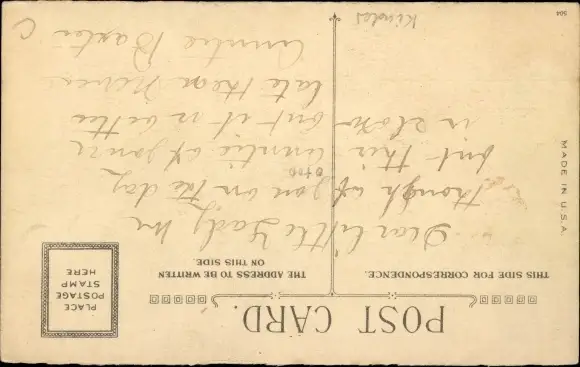 POST CARD.
THIS SIDE FOR CORRESPONDENCE.
THE ADDRESS TO BE WRITTEN
ON THIS SIDE.
PLACE
POSTAGE
STAMP
HERE
Dear Little Lady
though of you on the day
but this auntie of yours
is slow but it is better
late than never
Auntie Baxter
MADE IN U.S.A.
504